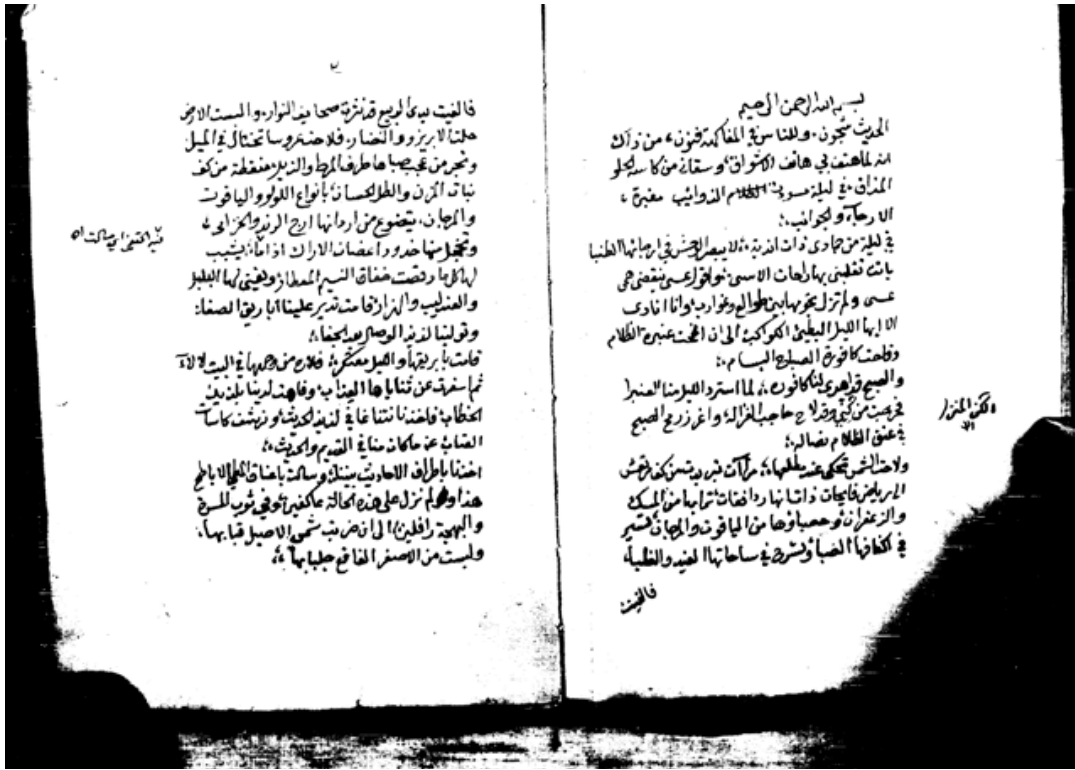 بسم الله الرحمن الرحيم
الحديث شجون، وللناس في المفاكهة فنون، من ذلك
انه لما هتف بي هاتف الاشواق، وسقاني من كاسه الحلو
المذاق، في ليلة مسودة الذوائب مغبرة
الارجاء والجوانب،
في ليلة من جمادى ذات اندية، لا يبصر في ارجائها الطنبا
باتت تقلبني بها راحات الاسى، نوافق عسى ينقضي همي
عسى ولم تزل نجومها بين طوالع وغوارب، وانا انادى
الا ايها الليل البطئ الكواكب، الى ان عنبرة الظلام
وفاحت كافورة الصباح البسام،
والصبح قد اهدى لنا كافوره، لما استرد الليل منا العنبرا
فخرجت من كني وقد لاح حاجب الغزالة، واغمد الصبح
في عنق الظلام نصاله،
الكن المنزل
ولاحت الشمس تحكي عند مطلعها، مرآة تبر بدت من كف مرتعش
الى رياض ترابها من المسك
والزعفران، وحصباؤها من الياقوت والمرجان، تسير
في اكنافها الصبا، وتسرح في ساحاتها الغيد والظبا،
فالفيت
٢
فالفيت يدى الربيع قد نشرت صحايف النوار، والبست الارض
حلتا الابريز والنضار، فلاحت عروسا تختال في الميل
وتجر من عجب صباها طرف المرط والذيل، منقطة من كف
نبات المزن والطل الحسان، بانواع اللولو والياقوت
والمرجان، يتضوع من اردانها ارج الرند والخزامى،
وتخجل منها خدود اغصان الاراك اذا ما، يشبب
لها كلما رقصت خفاق النسيم المعطار، ويغني لها البلبل
والعندليب والهزار، قامت تدير علينا اباريق الصفا،
وتولينا لذيذ الوصل بعد الجفا،
قامت بابريقها والليل معتكر، فلاح من وجهها في البيت لالاء
ثم سفرت عن ثناياها العذاب، وفاهت لدينا بلذيذ
الخطاب، فاخذنا نتناغا في لذيذ الحديث، ونرتشف كاسات
العتاب عن ما كان منا في القديم والحديث،
اخذنا باطراف الاحاديث بيننا، وسالت باعناق المطي الاباطح
هذا ولم نزل على هذه الحالة عاكفين، وفي ثوب المسرة
والبهجة رافلين، الى ان ضربت شمس الاصيل قبابها،
ولبست من الاصفر الفاقع جلبابها،